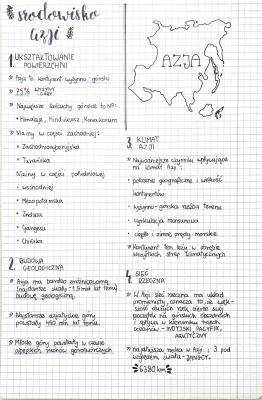 środowisko
azji
1. UKSZTAŁTOWANIE
POWIERZCHNI
Azja to kontynent wyżynno-górski
75% WYŻYNY
GÓRY
Największe łańcuchy górskie to np:
Himalaje, Hindukusz, Karakorum
Niziny w części zachodniej:
Zachodniosyberyjska
Turańska
Niziny w części południowej
i wschodniej
Mezopotamska
Indusu
Gangesu
Chińska
2. BUDOWA
GEOLOGICZNA
Azja ma bardzo zróżnicowaną
(najstarsze skały -1,5 mld lat temu)
budowę geologiczną
Najstarsze azjatyckie góry
powstały 450 mln lat temu
Młode góry powstały w czasie
alpejskich ruchów górotwórczych
AZJA
3. KLIMAT
AZJI
Najważniejsze czynniki wpływające
na klimat Azji:
położenie geograficzne i wielkość
kontynentów
wyżynno-górska rzeźba terenu
cyrkulacja monsunowa
ciepłe i zimne prądy morskie
Kontynent ten leży w obrębie
wszystkich stref klimatycznych
4. SIEĆ
RZECZNA
W Azji sieć rzeczna ma układ
promienisty, oznacza to, że więk-
szość dużych rzek bierze swój
początek na górskich obszarach
i spływa w kierunku trzech
oceanów - INDYJSKI, PACYFIK,
ARKTYCZNY
najdłuższa rzeka w Azji i 3 pod
względem świata - JANGCY
6380 km